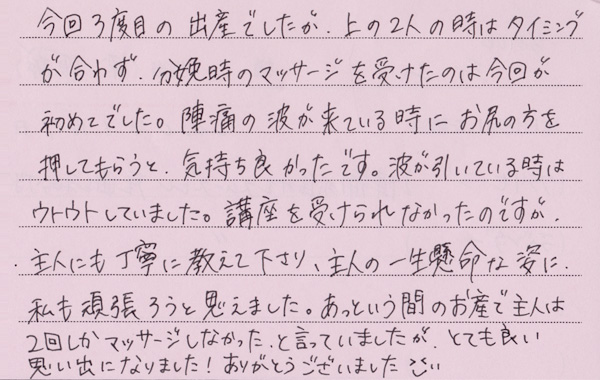 今回3度目の出産でしたが、上の2人の時はタイミング
が合わず、分娩時のマッサージを受けたのは今回が
初めてでした。陣痛の波が来ている時にお尻の方を
押してもらうと、気持ち良かったです。波が引いている時は
ウトウトしていました。講座を受けられなかったのですが、
主人にも丁寧に教えて下さり、主人の一生懸命な姿に、
私も頑張ろうと思えました。あっという間のお産で主人は
2回しかマッサージしなかった、と言っていましたが、とても良い
思い出になりました!ありがとうございました